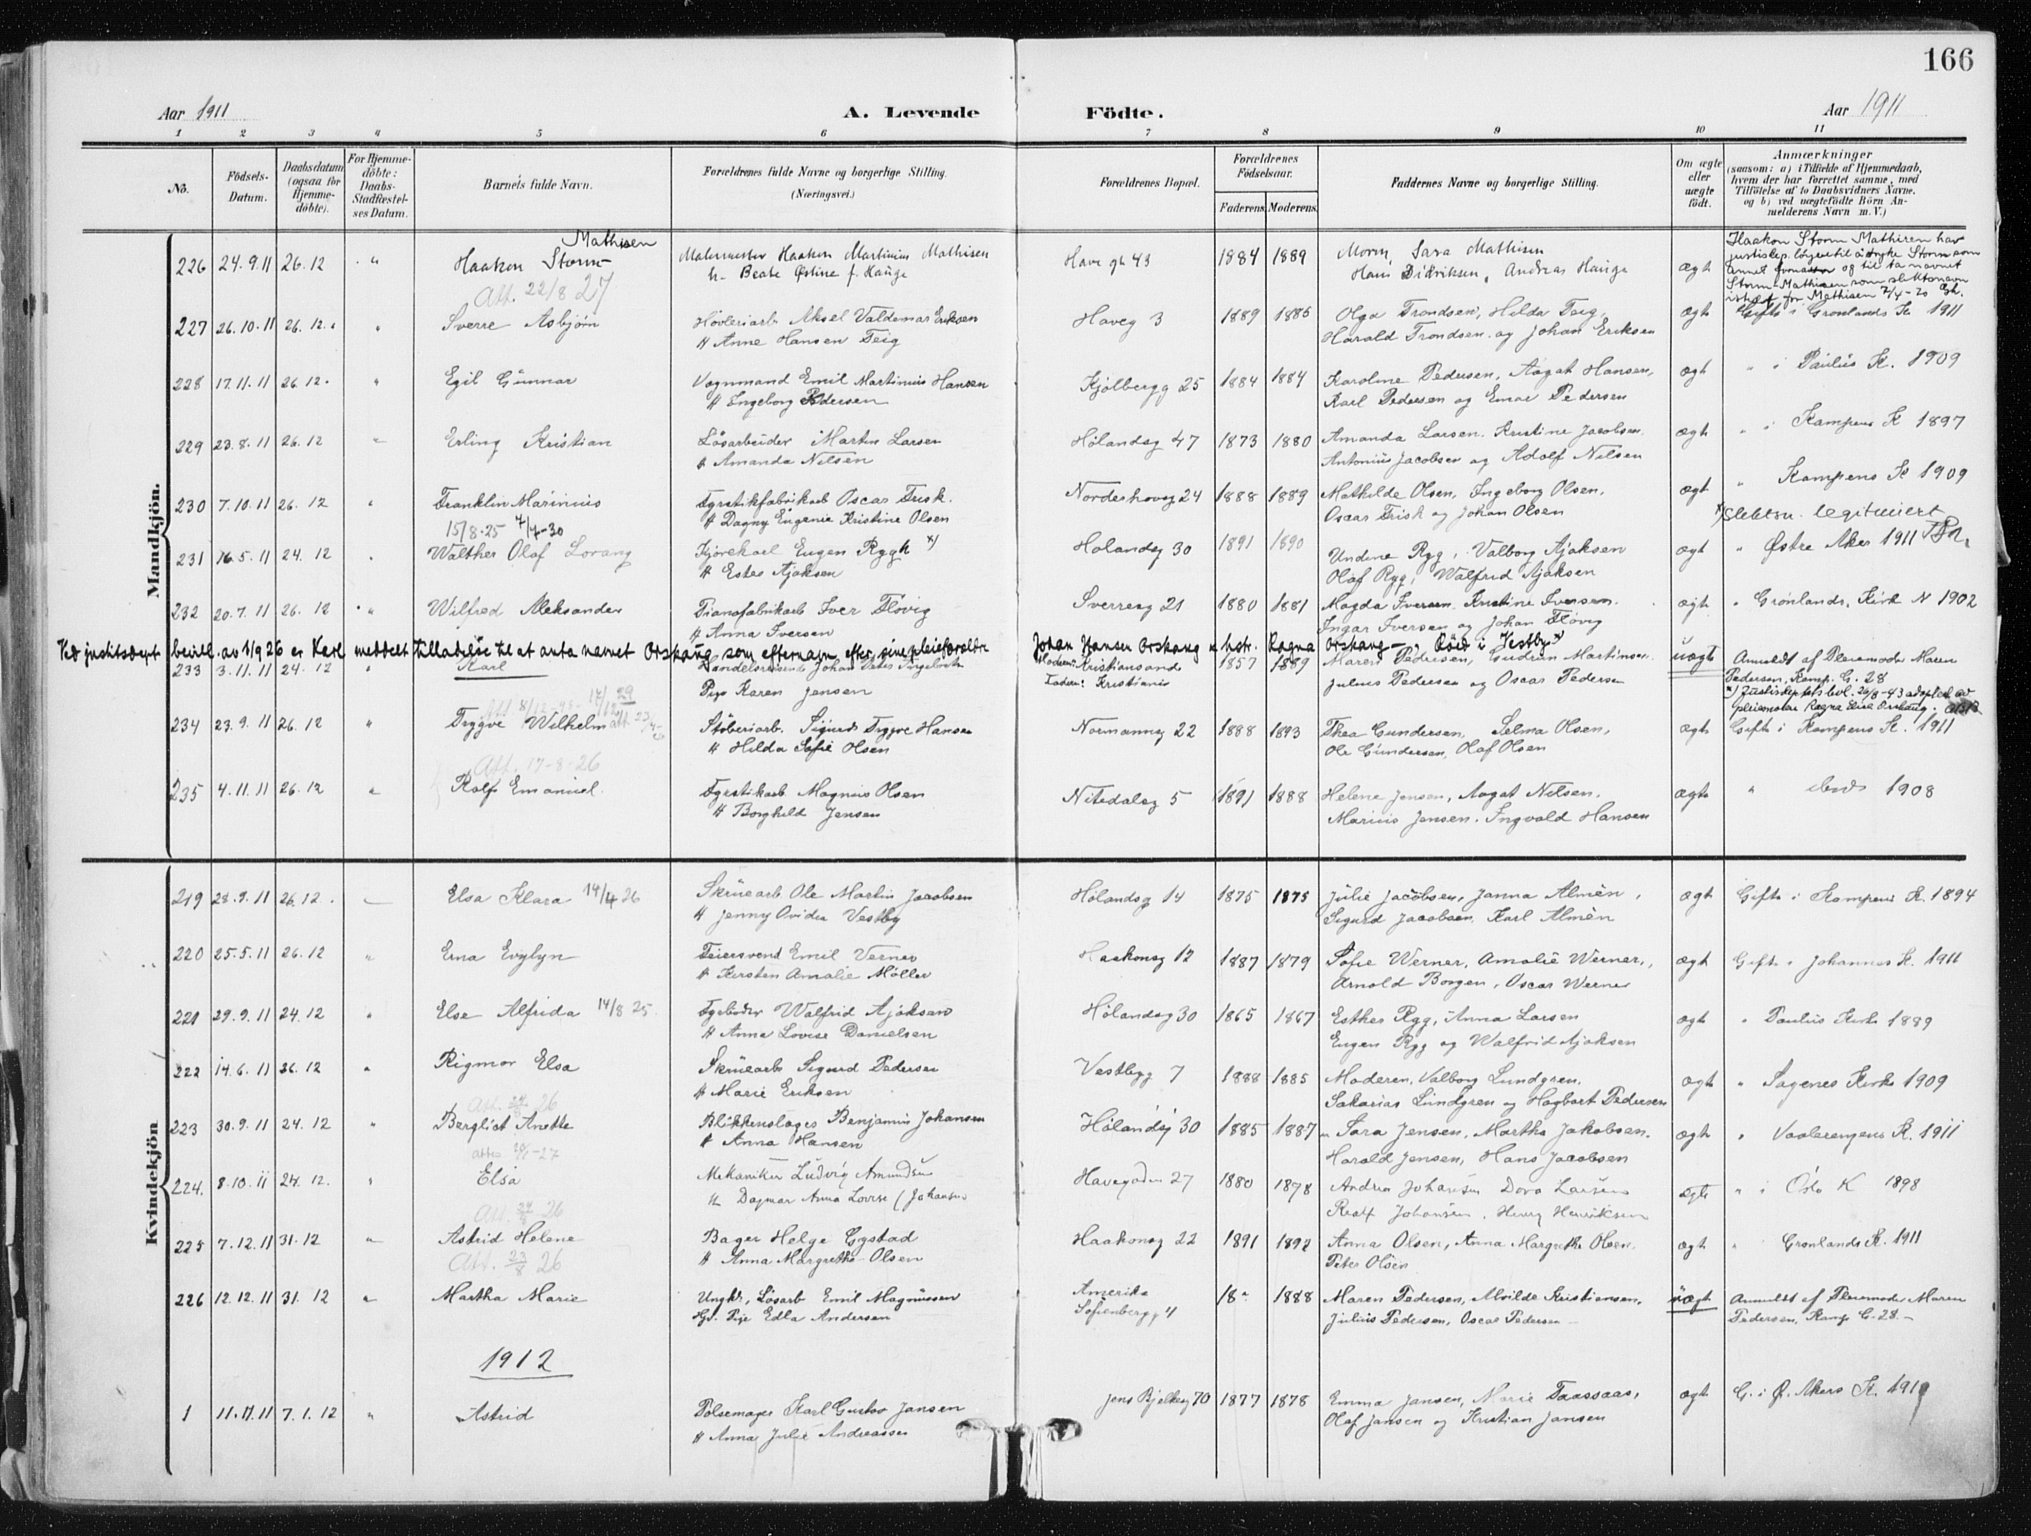 166
Aar 1911
A. Levende Födte.
Aar 1911
1 2 3 4 5 6 7 8 9 10 11
No.
Födsels-Datum.
Daabsdatum (ogsaa for Hjemme-döbte).
For Hjemme-döbte: Daabs-Stadfæstel-ses Datum.
Barnets fulde Navn.
Forældrenes fulde Navne og borgerlige Stilling. (Næringsvei.)
Forældrenes Bopæl.
Forældrenes Födselsaar.
Faderens. Moderens.
Faddernes Navne og borgerlige Stilling.
Om ægte eller uægte födt.
Anmærkninger
(saasom: a) i Tilfælde af Hjemmedaab,
hvem der har forrettet samme, med
Tilföielse af to Daabsvidners Navne,
og b) ved uægtefödte Börn An-
melderens Navn m. V.)
Mandkjön.
226 24.9.11 26.12 " Haakon Storm Mathisen Malermester Haakon Martinius Mathisen Haveg 43 1884 1889 Sara Mathisen ægt Haakon Storm Mathisen har
h. Beate Østine f. Hauge Hans Didriksen, Andreas Hauge
Storm-Mathisen som slektsnavn
istedf. for Mathisen
Att. 22/8 27
227 26.10.11 26.12. " Sverre Asbjørn Høvleriarb Aksel Valdemar Eriksen Haveg 3 1889 1886 Olga Trondsen, Hilda Teig, ægt Gifte i Grønlands K. 1911
H Anne Hansen Teig Harald Trondsen og Johan Eriksen
228 17.11.11 26.12. " Egil Gunnar Vognmand Emil Martinius Hansen Kjølbergg 25 1884 1884 Karoline Pedersen, Aagat Hansen, ægt " i Paulus K. 1909
H Ingeborg Pedersen Karl Pedersen og Einar Pedersen
229 23.8.11 26.12 " Erling Kristian Løsarbeider Martin Larsen Hølandsg 47 1873 1880 Amanda Larsen, Kristine Jacobsen ægt " i Kampens K 1897
H Amanda Nilsen Antonius Jacobsen og Adolf Nilsen
230 7.10.11 26.12 " Franklin Marinius Fyrstikfabrikarb Oscar Frisk. Nordrehovsg 24 1888 1889 Mathilde Olsen, Ingeborg Olsen, ægt " Kampens K 1909
H Dagny Eugenie Kristine Olsen Oscar Frisk og Johan Olsen
15/8-25 7/7-30
231 16.5.11 24.12 " Walther Olaf Lorang Kjørekarl Eugen Rygh x) Hølandsg 30 1891 1890 Undine Ryg, Valborg Ajaksen ægt " Østre Aker 1911
H Ester Ajaksen Olaf Ryg, Walfrid Ajaksen
x) Slektsn. legitimert
232 20.7.11 26.12 " Wilfred Aleksander Pianofabrikarb Iver Fløvig Sverresg 21 1880 1881 Magda Iversen, Kristine Iversen. ægt " Grønlands Kirk N 1902
H Anna Iversen Ingar Iversen og Johan Fløvig
Ved justitsdept bevill. av 1/9 26 er Karl meddelt tilladelse til at anta navnet Orskaug som efternavn efter sine pleieforældre Johan Hansen Orskaug u. hstr. Ragna Orskaug, Røed i Vestby x)
233 3.11.11 24.12 " Karl Handelsreisende Johan Moderen: Kristiansand 1857 1889 Maren Pedersen, Gudrun Martinsen uægte Anmeldt af Pleiemoder Maren
Pige Karen Jensen Faderen: Kristiania Julius Pedersen og Oscar Pedersen Pedersen, Kamp. G. 28
x) Justisdeptets bevl. 26/8-43 adoptert av
pleiemoder Ragna Elise Orskaug.
234 23.9.11 26.12 " Tryggve Wilhelm Støberiarb. Sigurd Tryggve Hansen Normannsg 22 1888 1893 Thea Gundersen, Selma Olsen, ægt Gifte i Kampens K. 1911
H Hilda Sofie Olsen Ole Gundersen, Olaf Olsen
Att. 17-8-26
235 4.11.11 26.12 " Rolf Emanuel Fyrstikarb Magnus Olsen Nitedalsg 5 1891 1888 Helene Jensen, Aagat Nilsen, ægte " ibid 1908
H Borghild Jensen Marius Jensen, Ingvald Hansen
Kvindekjön
219 28.9.11 26.12. Elsa Klara 14/4 26 Skruearb Ole Martin Jacobsen Hølandsg 14 1875 1875 Julie Jacobsen, Janna Almèn, ægt Gifte i Kampens K. 1894
H Jenny Ovidia Vestby Sigurd Jacobsen, Karl Almèn
220 25.5.11 26.12 " Erna Evylyn Feiersvend Emil Verner Haakonsg 12 1887 1879 Sofie Werner, Amalie Werner, ægt Gifte i Johannes K. 1911
H Kirsten Amalie Møller Arnold Borgen, Oscar Werner
221 29.9.11 24.12 " Else Alfrida 14/8 25. Fyrbøder Walfrid Ajaksen Hølandsg 30 1865 1867 Esther Ryg, Anna Larsen ægt " Paulus Kirke 1889
H Anna Lovise Danielsen Eugen Ryg og Walfrid Ajaksen
222 14.6.11 26.12 " Rigmor Elsa Skruearb Sigurd Pedersen Vestbyg 7 1888 1885 Moderen, Valborg Lundgren, ægt " Sagenes Kirke 1909
H Marie Eriksen Sakarias Lundgren og Hagbart Pedersen
223 30.9.11 24.12 " Bergliot Anette Blikkenslager Benjamin Johansen Hølandsg 30 1885 1887 Sara Jensen, Martha Jakobsen. ægt " Vaalerengens K. 1911
H Anna Hansen Harald Jensen, Hans Jacobsen
224. 8.10.11 24.12. " Elsa Mekaniker Ludvig Amundsen Havegaden 27 1880 1878 Andrea Johansen Dora Larsen ægte " i Oslo K 1898
H Dagmar Anna Lovise (Johansen Rolf Johansen, Henry Henriksen
225 7.12.11 31.12 " Astrid Helene Bager Helge Gystad Haakonsg 22 1891 1892 Anna Olsen, Anna Margrethe Olsen. ægt " Grønlands K. 1911
H Anna Margrethe Olsen Peter Olsen
Att. 23/8 26
226 12.12.11 31.12 " Martha Marie Ungk., Løsarb Emil Magnussen Amerika 18- 1888 Maren Pedersen, Alvilde Kristiansen, uægt Anmeldt af Pleiemoder Maren
Pige Edla Andersen Sofienbergg 4 Julius Pedersen, Oscar Pedersen Pedersen, Kamp G. 28.
1912
1 11.11.11 7.1.12 " Astrid Pølsemager Karl Gustav Jansen Jens Bjelkesg 70 1877 1878 Emma Jansen, Marie Taassaas, ægt G. i Ø. Akers K. 1910
H Anna Julie Andreassen Olaf Jansen og Kristian Jansen